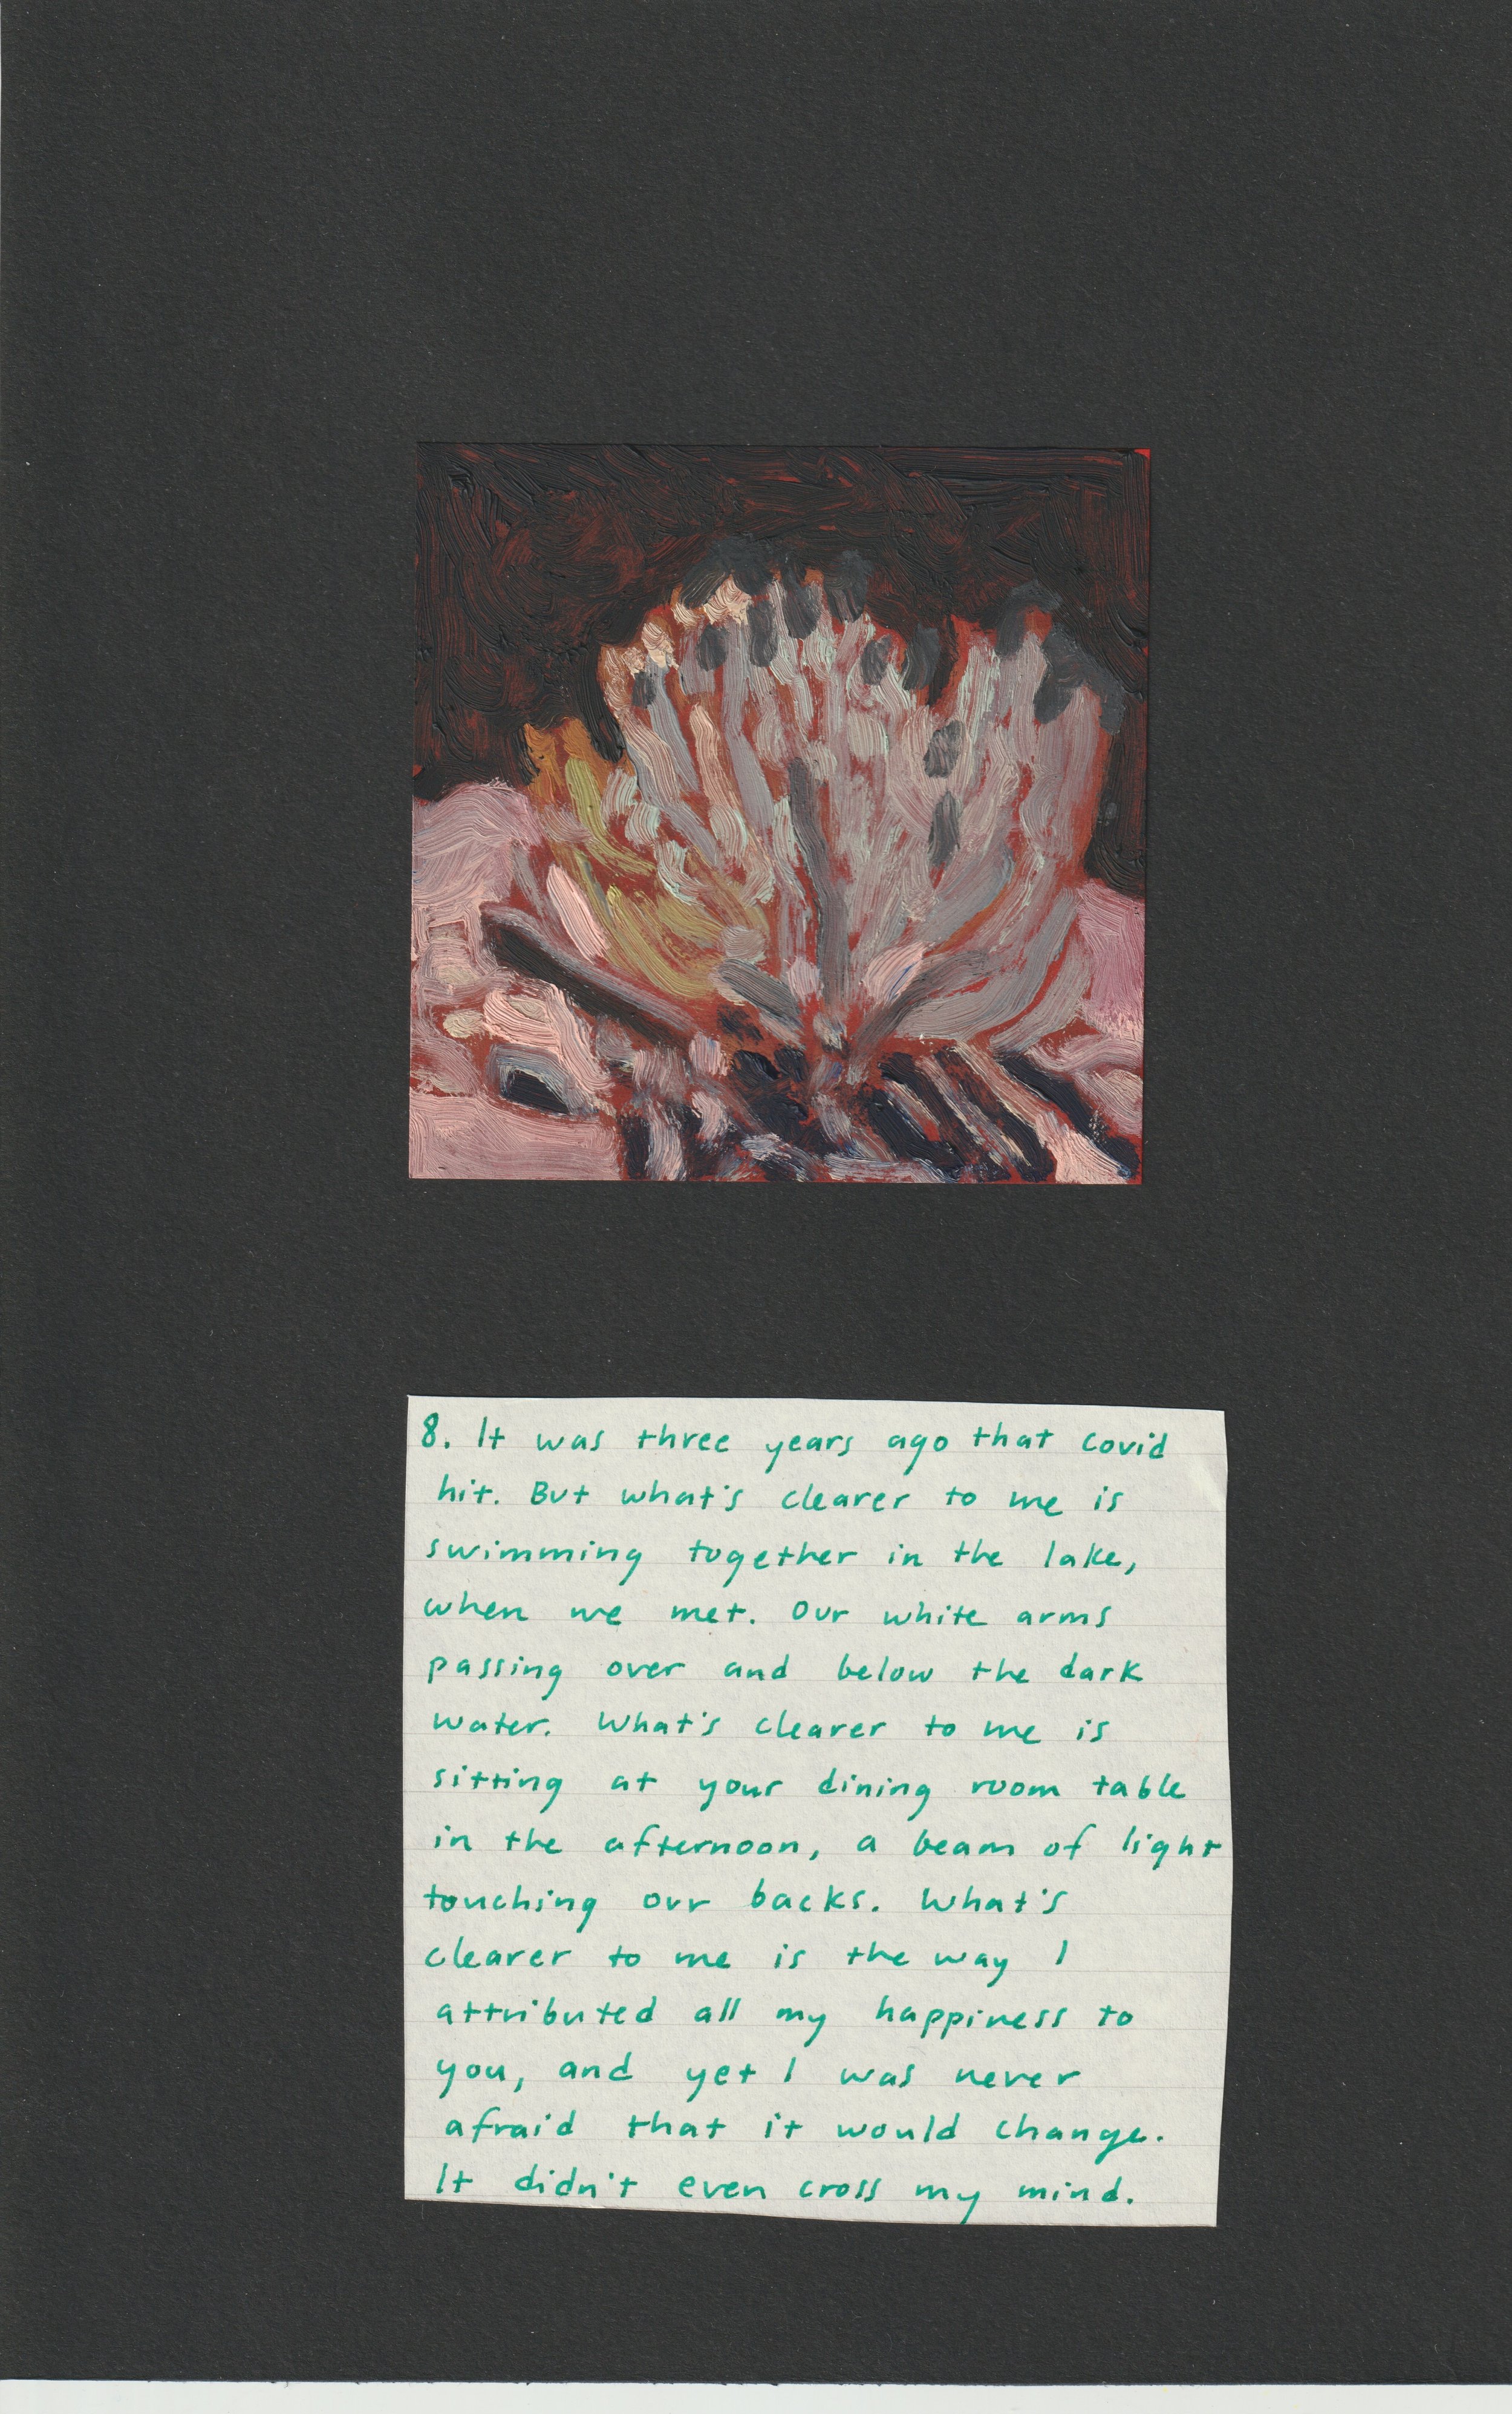 8. It was three years ago that covid
hit. But what's clearer to me is
swimming together in the lake,
when we met. Our white arms
passing over and below the dark
water. What's clearer to me is
sitting at your dining room table
in the afternoon, a beam of light
touching our backs. What's
clearer to me is the way I
attributed all my happiness to
you, and yet I was never
afraid that it would change.
It didn't even cross my mind.